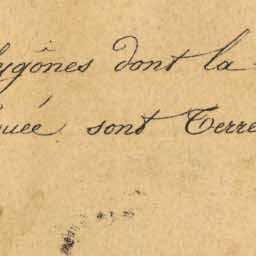 lygônes dont la
quée sont Terre